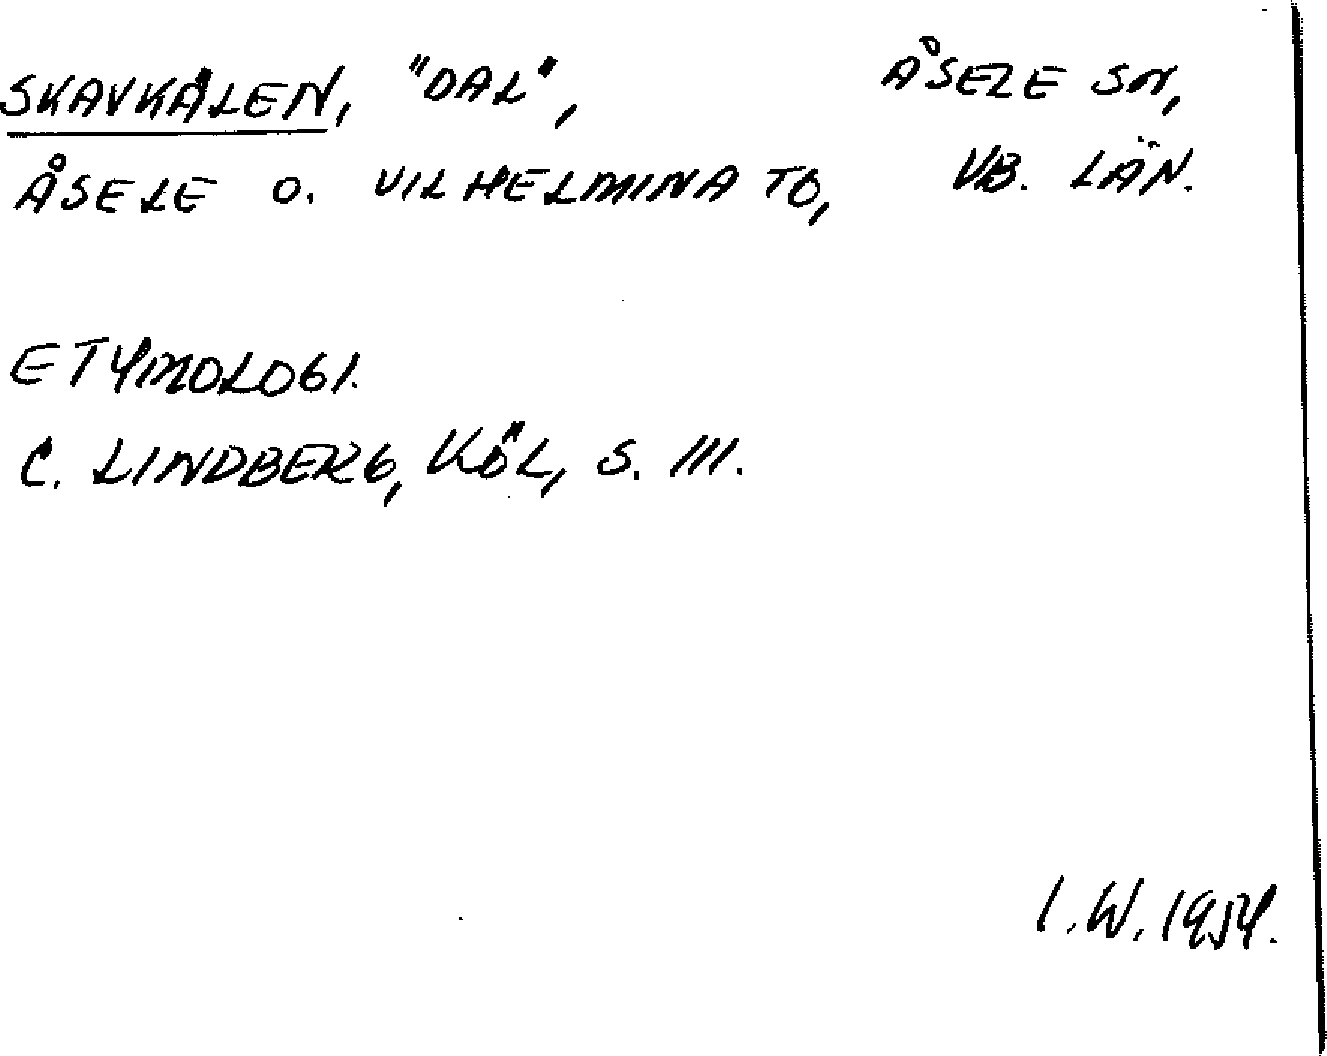 SKAVKÅLEN, "DAL", ÅSELE SN,
ÅSELE O. VILHELMINA TB, VB. LÄN.
ETYMOLOGI.
C. LINDBERG, KÖL, S. 111.
I.W. 1954.